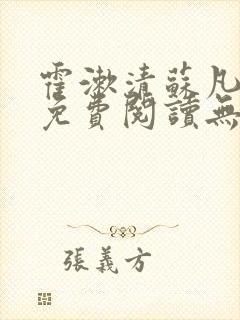 霍漱清蘇凡
免費閱讀無
張義方